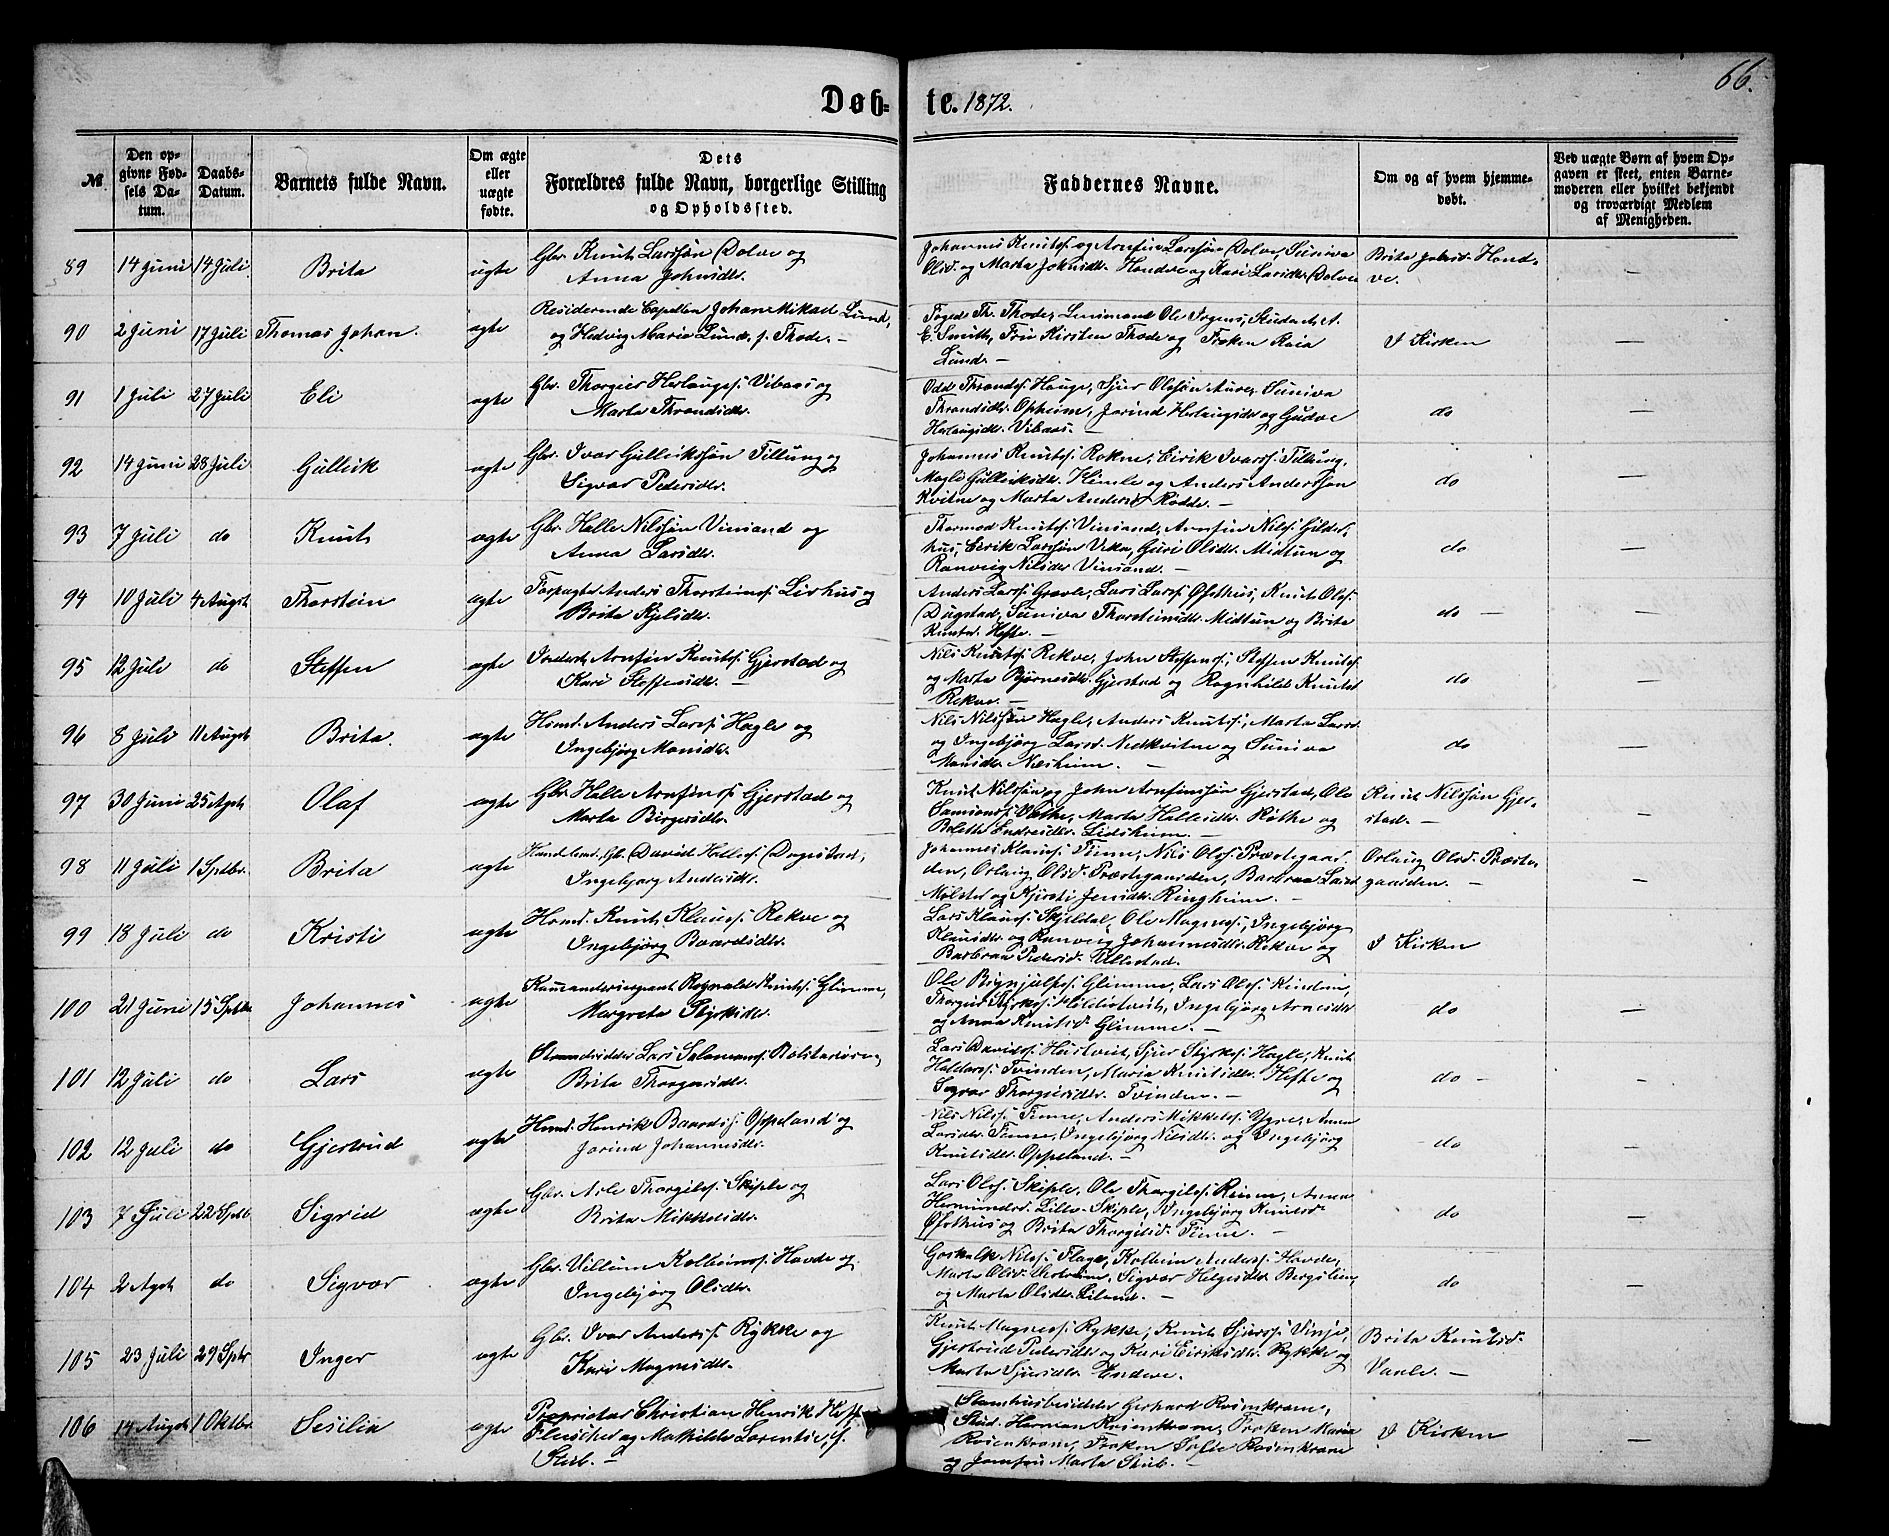 66.
Døb- te. 1872.
№ Den op- givne Fød- sels Da- tum. Daabs- Datum. Barnets fulde Navn. Om ægte eller uægte fødte. Dets Forældres fulde Navn, borgerlige Stilling og Opholdssted. Faddernes Navne. Om og af hvem hjemme- døbt. Ved uægte Børn af hvem Op- gaven er skeet, enten Barne- moderen eller hvilket bekjendt og troværdigt Medlem af Menigheden.
89 14 Juni 14 Juli Brita ægte Gbr. Knut Larssøn Dolve og
Anna Johnsdtr.
Johannes Knuts. og Arnfin Larssøn Dolve, Suniva
Olsd. og Marta Johnsdtr. Handve og Kari Larsdtr. Dolve
Brita Johsd. Hand-
ve. —
90 2 Juni 17 Juli Thomas Johan. ægte Residerende Capellan Johan Mikael Lund,
og Hedvig Marie Lund, f. Thode. —
Foged Th. Thode, Lensmand Ole Stud. A.
E. Smith, Fru Kirsten Thode og Frøken Kaia
Lund. —
I Kirken —
91 1 Juli 27 Juli Eli ægte Gbr. Thorgier Herlaugs. Vibaas og
Marta Throndsdtr.
Odd Thronds. Hauge, Sjur Olssøn Aure, Suniva
Throndsdtr. Opheim, Jorind Herlaugsdtr. og Gudve
Herlaugsdtr. Vibaas. —
do —
92 14 Juni 28 Juli Gulleik ægte Gbr. Ivar Gulleikssøn Tillung og
Sigvor Pedersdtr.
Johannes Knuts. Rokne, Eirik Ivars. Tillung,
Magli Gulleiksdtr. Himle og Anders Anderssøn
Kvitne og Marta Andersd. Rødde. —
do —
93 7 Juli do Knut ægte Gbr. Halle Nilssøn Vinsand og
Anna Larsdtr.
Thormod Knuts. Vinsand, Arnfin Nils. Gilder-
hus, Eirik Larssøn Veka, Guri Olsdtr. Midtun og
Ranveig Nilsdtr. Vinsand. —
do —
94 10 Juli 4 Augst Thorstein ægte Forpagter Anders Thorsteins. Lirhus og
Brita Kjelsdtr.
Anders Lars. Gravle, Lars Lars. Øfsthus, Knut Ols.
Dugstad, Suniva Thorsteinsdtr. Midtun og Brita
Knutsd. Hefte. —
do —
95 12 Juli do Steffen ægte Inderst Arnfin Knuts. Gjerstad og
Kari Steffensdtr. —
Nils Knuts. Rekve, John Steffens., Steffen Knuts.
og Marta Bjørnesdtr. Gjerstad og Ragnhild Knutsd.
Rekve. —
do —
96 8 Juli 11 Augst Brita. ægte Hsmd. Anders Lars. Hagle og
Ingebjørg Monsdtr.
Nils Nilssøn Hagle, Anders Knuts., Marta Larsd.
og Ingebjørg Larsd. Nedkvitne og Suniva
Monsdtr. Næsheim. —
do —
97 30 Juni 25 Agst Olaf ægte Gbr. Halle Arnfins. Gjerstad og
Marta Birgersdtr.
Knut Nilssøn og John Arnfinssøn Gjerstad, Ole
Samsons. Røthe, Marta Hallesdtr. Røthe og
Bolette Endresdtr. Lidsheim. —
Knut Nilssøn Gjer-
stad. —
98 11 Juli 1 Sptbr. Brita ægte Gbr. David Halles. Dugstad,
Ingebjørg Andersdtr.
Johannes Klaus. Finne, Nils Ols. Præstegaar-
den, Orlaug Olsd. Præstegaarden, Barbraa Larsd.
Mølster og Kjersti Jensdtr. Ringheim. —
Orlaug Olsd. Præste-
gaarden. —
99 18 Juli do Kristi ægte Hsmd. Knut Klaus. Rekve og
Ingebjørg Baardsdtr.
Lars Klaus. Skjeldal, Ole Magnes., Ingebjørg
Klausdtr. og Ranveig Johannesdtr. Rekve og
Barbraa Pedersd. Ullestad.
I Kirken —
100 21 Juni 15 Sptbr Johannes ægte Kommandersergeant Rognald Knuts. Glimme,
Margreta Styrksdtr.
Ole Brynjulfs. Glimme, Lars Ols. Kinden,
Thorgier Styrks. Ingebjørg Arnesdtr
og Anna Knutsd. Glimme. —
do —
101 12 Juli do Lars ægte Strandsidder Lars Salamons.
Brita Thorgersdtr.
Lars Davids. Hustveit, Sjur Styrks. Hagle, Knut
Haldors. Tvinden, Maria Knutsdtr. Hefte og
Sigvor Thorgiersdtr. Tvinden. —
do —
102 12 Juli do Gjertrud ægte Hsmd. Henrik Baards. Oppeland og
Jorind Johannesdtr.
Nils Nils. Finne, Anders Mikkels. Ygre, Anna
Larsdtr. Finne, Ingebjørg Nilsdtr. og Ingebjørg
Knutsdtr. Oppeland. —
do —
103 7 Juli 22 Sptb Sigrid ægte Gbr. Asle Thorgils. Skiple og
Brita Mikkelsdtr.
Lars Ols. Skiple, Ole Thorgils. Rinne, Anna
Hermundsd. Lille-Skiple, Ingebjørg Knutsd.
Øfsthus og Brita Thorgilsd. Finne. —
do —
104 2 Agst do Sigvor ægte Gbr. Villum Kolbeins. Havde og
Ingebjørg Olsdtr.
Goskalk Nils. Flage, Kolbein Anders. Havde,
Marta Olsd. Sigvor Helgesdtr. Bergslien
og Marta Olsdtr. Liland. —
do —
105 23 Juli 29 Sptr Inger ægte Gbr. Ivar Anders. Rykke og
Kari Magnesdtr.
Knut Magnes. Rykke, Knut Sjurs. Vinje,
Gjertrud Pedersdtr og Kari Eiriksdtr. Rykke og
Marta Sjursdtr. Endeve.
Brita Knutsd.
Vaale. —
106 14 Augst 1 Oktbr. Sesilia ægte Proprietær Christian Henrik
Fleischer og Mathilde Lorentse, f.
Stub. —
Stamhusbesidder Gerhard Rosenkrone,
Stud. Herman Rosenkrone, Frøken Maria
Rosenkrone, Frøken Sofie Rosenkrone
og Jomfru Marta Stub. —
I Kirken —